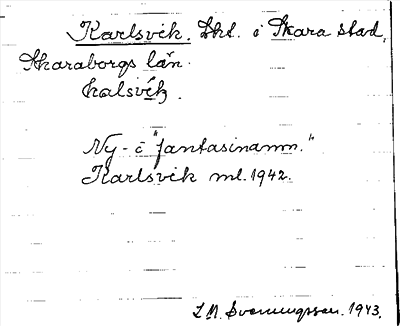 Karlsvik. Lht. i Skara stad,
Skaraborgs län.
kalsvík.
Ny- i "fantasinamn."
Karlsvik ml. 1942.
L M. Svenungsson. 1943.